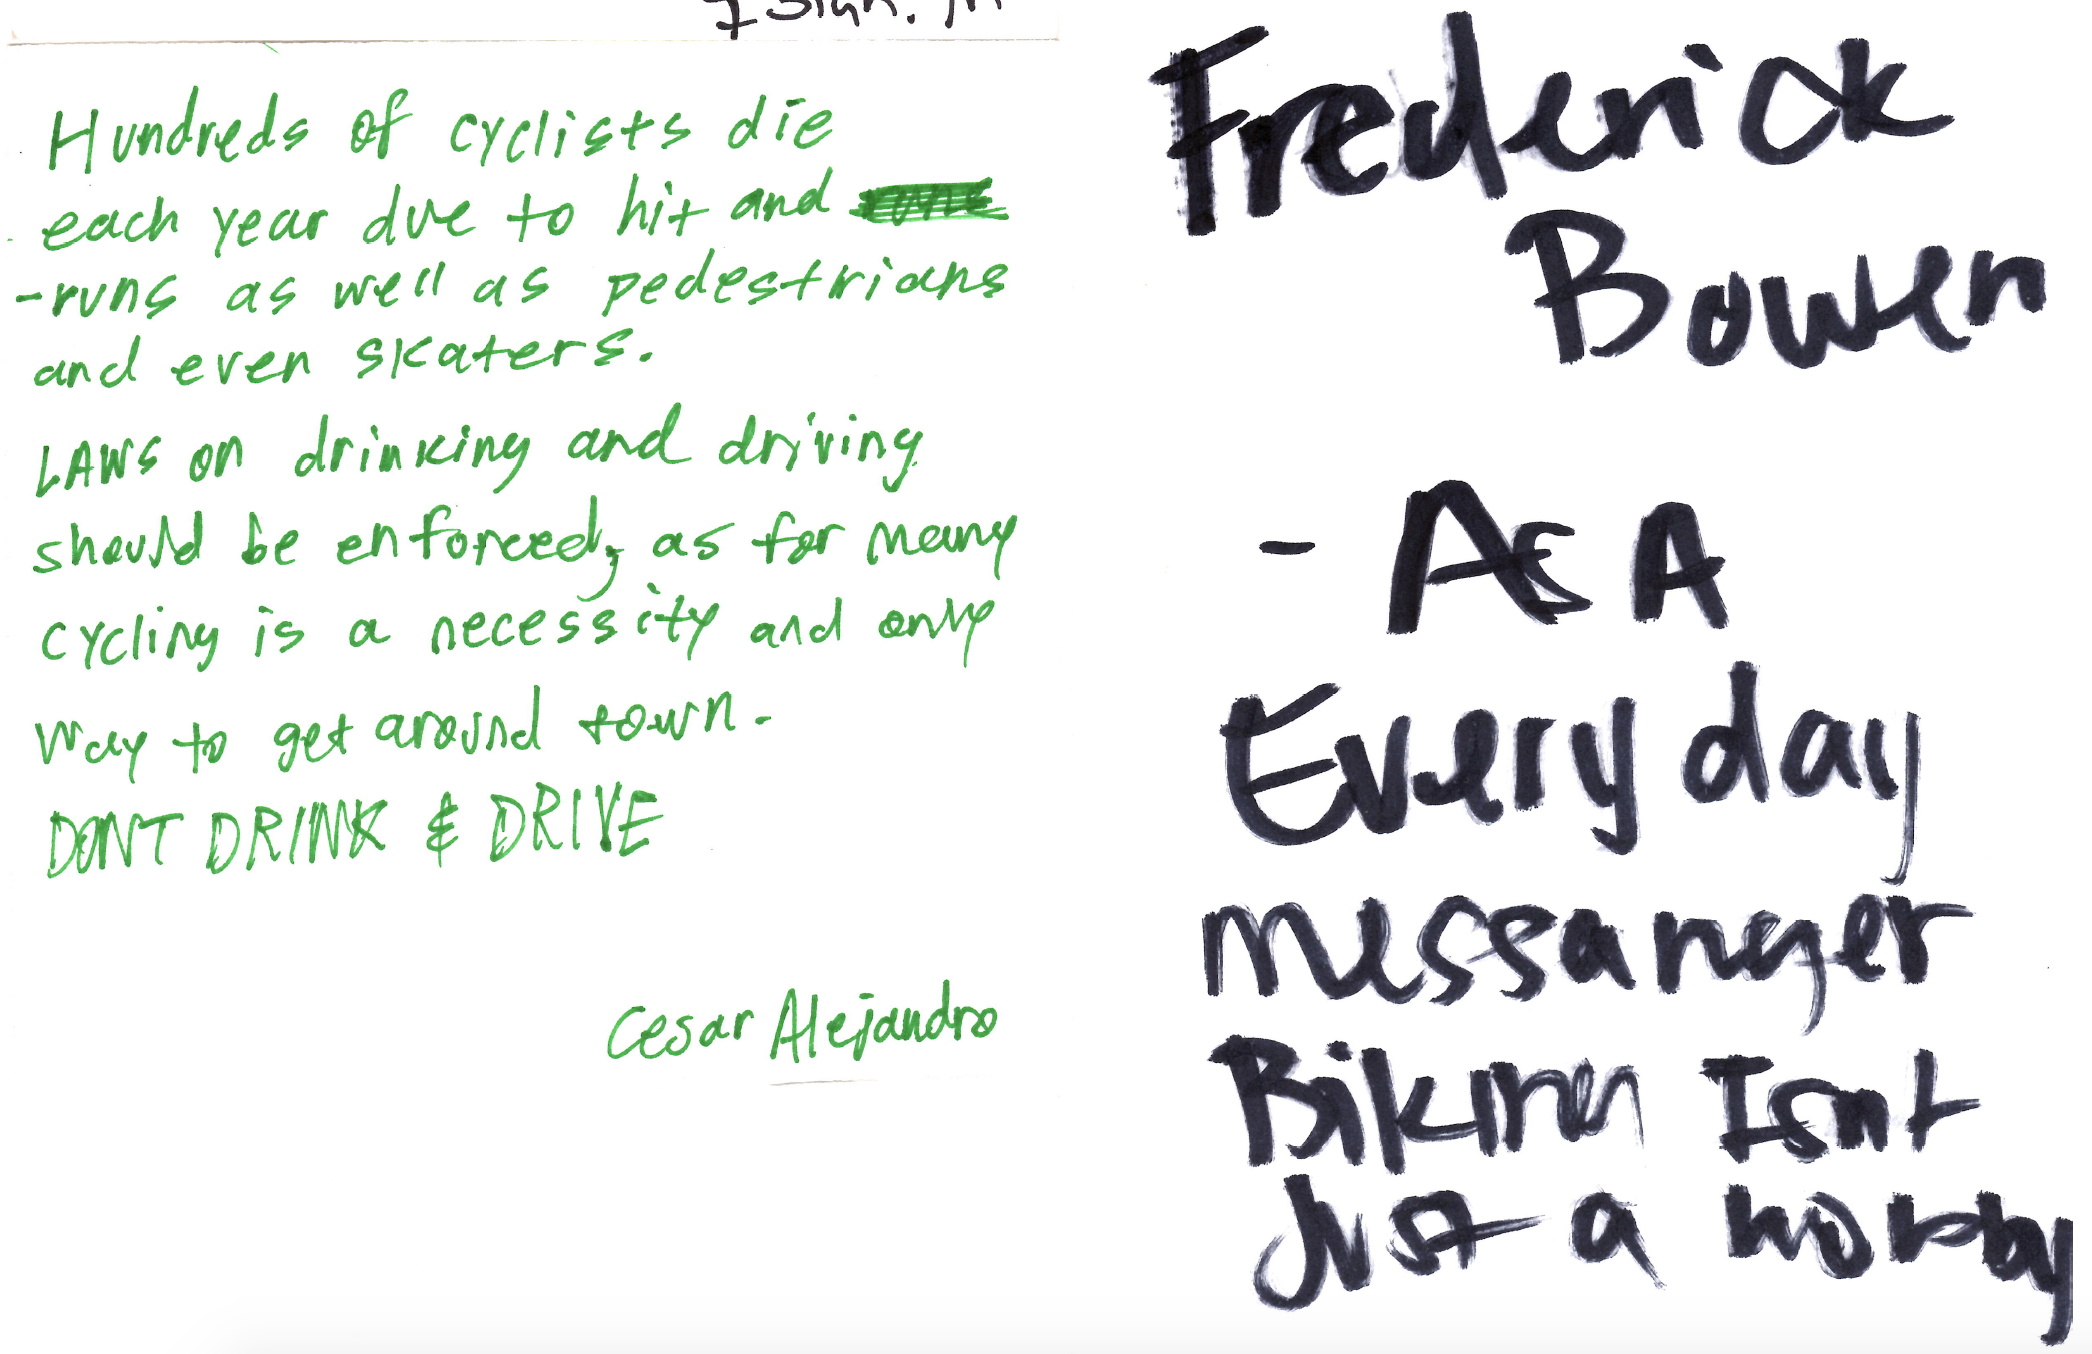 Hundreds of cyclists die
each year due to hit and
-runs as well as pedestrians
and even skaters.
LAWS on drinking and driving
should be enforced, as for many
cycling is a necessity and only
way to get around town.
DONT DRINK & DRIVE
Cesar Alejandro
Frederick
Bowen
- As A
Every day
messanger
Biking Isnt
Just a hobby